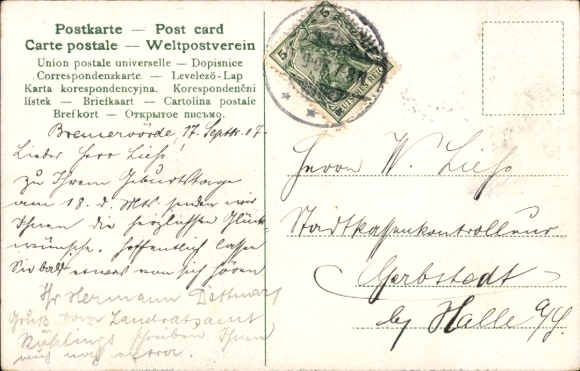 Postkarte — Post card
Carte postale — Weltpostverein
Union postale universelle — Dopisnice
Correspondenzkarte — Levelező-Lap
Karta korespondencyjna. Korespondenční
lístek — Briefkaart — Cartolina postale
Brefkort — Открытое письмо.
Bremervörde, 17. Septbr. 17.
Lieber Herr Liehs!
zu Ihrem Geburtstage
am 18. d. Mts. senden wir
Ihnen die herzlichsten Glück-
wünsche. Hoffentlich lassen
Sie bald etwas von sich hören
Ihr Hermann Dettmar
Gruß vom Landratsamt
schreiben Ihnen
5 5
DEUTSCHES REICH
Herrn W. Liehs
Stadtkassenkontrolleur
Gerbstedt
bei Halle a/S.